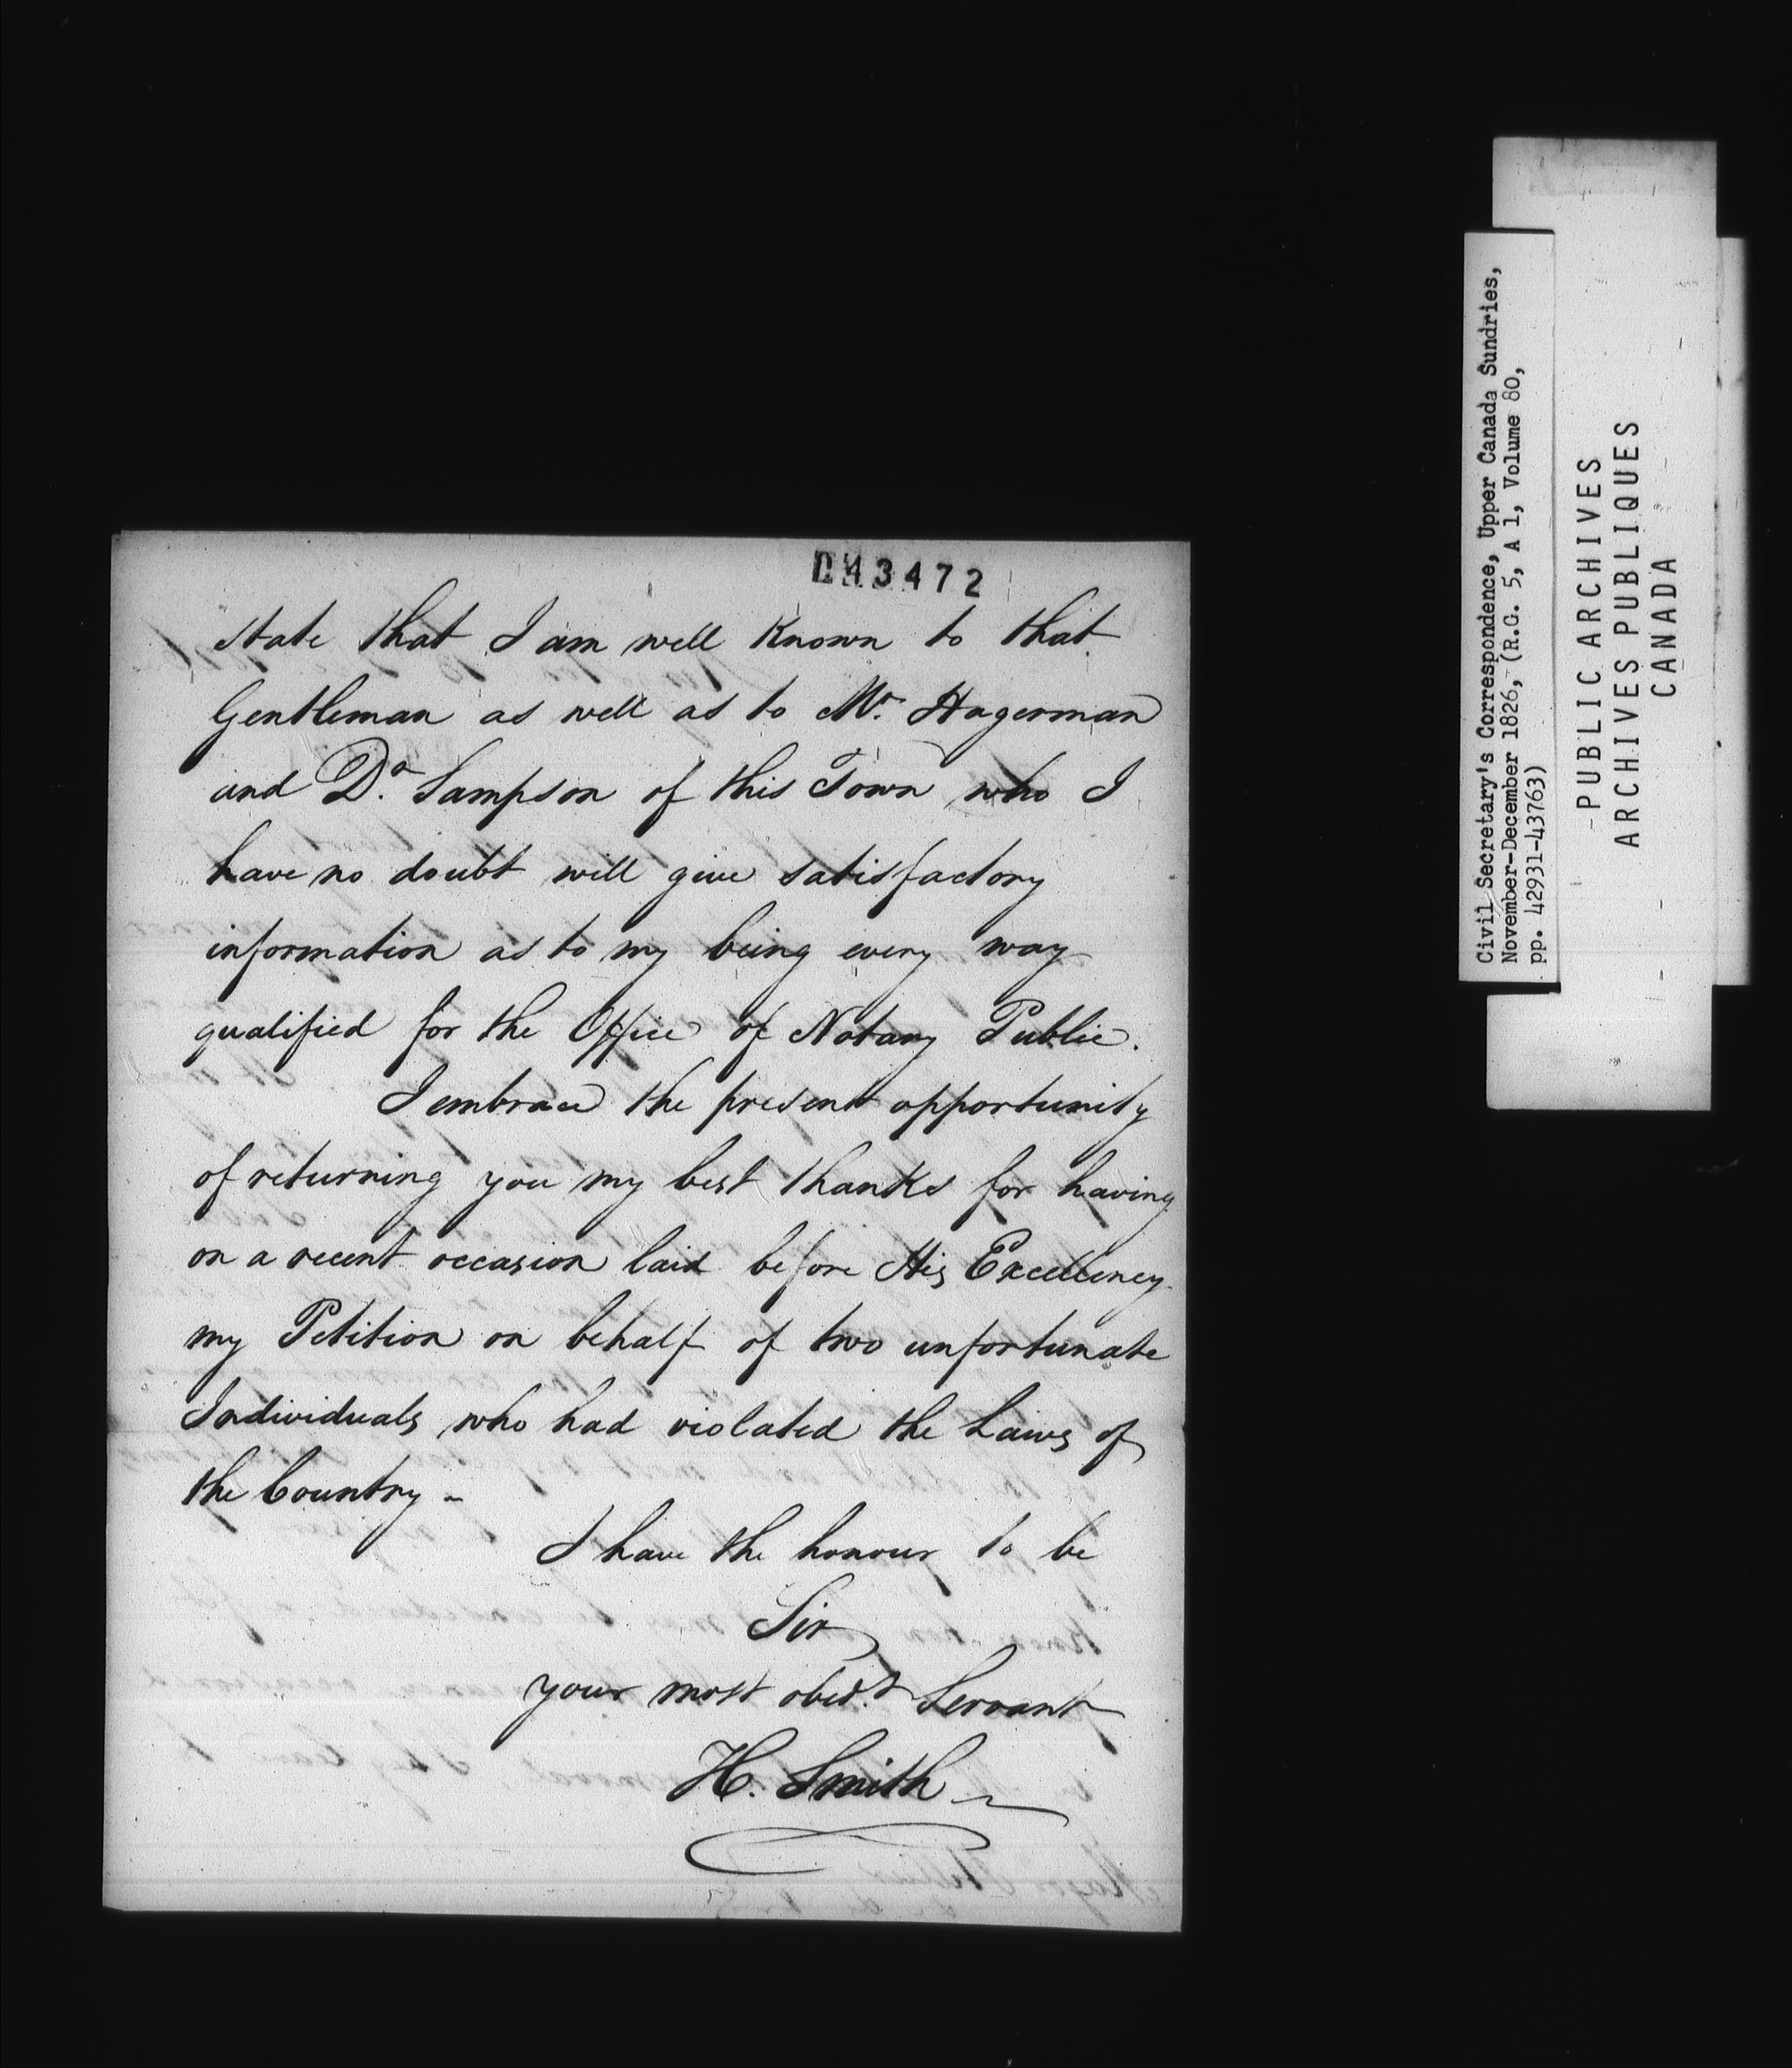 043472
state that I am well known to that
Gentleman as well as to Mr. Hagerman
and Dr. Sampson of this Town who I
have no doubt will give satisfactory
information as to my being every way
qualified for the Office of Notary Public.
I embrace the present opportunity
of returning you my best thanks for having
on a recent occasion laid before His Excellency
my Petition on behalf of two unfortunate
Individuals who had violated the Laws of
the Country -
I have the honour to be
Sir
your most obedt. Servant
H. Smith
Civil Secretary's Correspondence, Upper Canada Sundries,
November-December 1826, (R.G. 5, A 1, Volume 80,
pp. 42931-43763)
PUBLIC ARCHIVES
ARCHIVES PUBLIQUES
CANADA